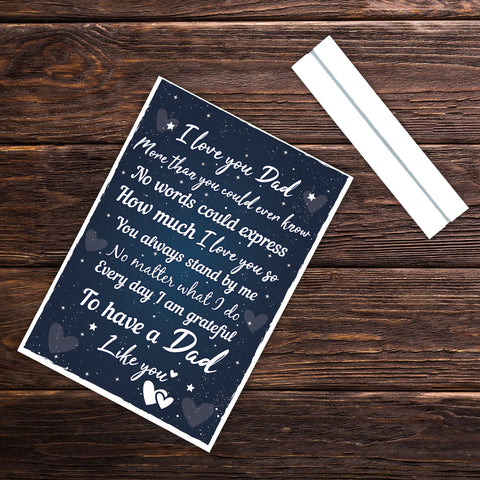 I love you Dad
More than you could ever know
No words could express
How much I love you so
You always stand by me
No matter what I do
Every day I am grateful
To have a Dad
Like you